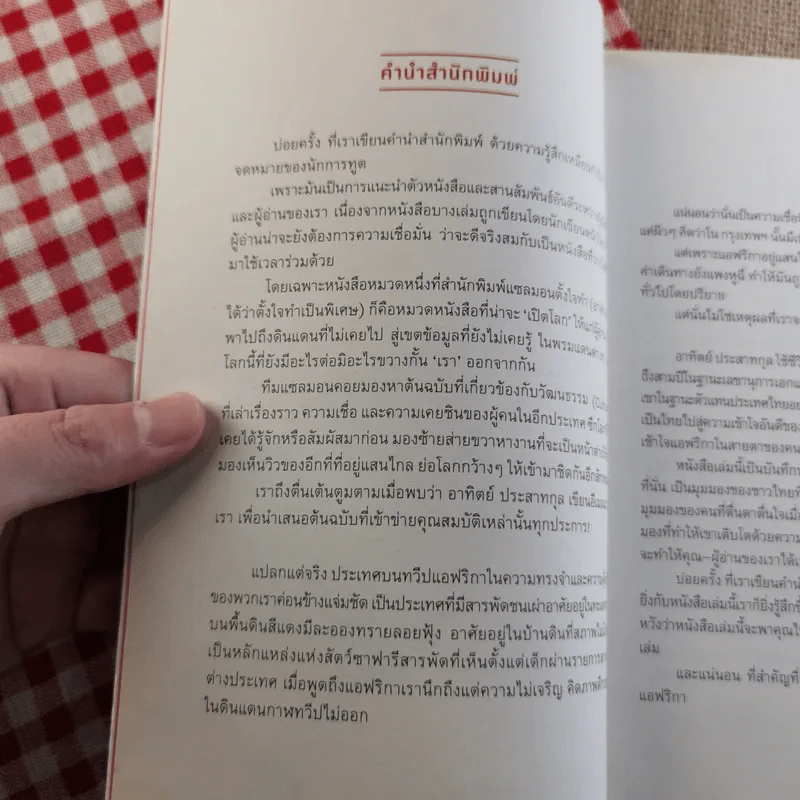 คำนำสำนักพิมพ์
บ่อยครั้ง ที่เราเขียนคำนำสำนักพิมพ์ ด้วยความรู้สึกเหมือน
จดหมายของนักการทูต
เพราะมันเป็นการแนะนำตัวหนังสือและสานสัมพันธ์อันดีระหว่าง
และผู้อ่านของเรา เนื่องจากหนังสือบางเล่มถูกเขียนโดยนักเขียน
ผู้อ่านน่าจะยังต้องการความเชื่อมั่น ว่าจะดีจริงสมกับเป็นหนังสือ
มาใช้เวลาร่วมด้วย
โดยเฉพาะหนังสือหมวดหนึ่งที่สำนักพิมพ์แซลมอนตั้งใจทำ
ได้ว่าตั้งใจทำเป็นพิเศษ) ก็คือหมวดหนังสือที่น่าจะ ‘เปิดโลก’ ให้แก่
พาไปถึงดินแดนที่ไม่เคยไป สู่เขตข้อมูลที่ยังไม่เคยรู้ ในพรมแดน
โลกนี้ที่ยังมีอะไรต่อมิอะไรขวางกั้น ‘เรา’ ออกจากกัน
ทีมแซลมอนคอยมองหาต้นฉบับที่เกี่ยวข้องกับวัฒนธรรม
ที่เล่าเรื่องราว ความเชื่อ และความเคยชินของผู้คนในอีกประเทศ
เคยได้รู้จักหรือสัมผัสมาก่อน มองซ้ายส่ายขวาหางานที่จะเป็นหน้าต่าง
มองเห็นวิวของอีกที่ที่อยู่แสนไกล ย่อโลกกว้างๆ ให้เข้ามาชิดกันอีก
เราถึงตื่นเต้นตูมตามเมื่อพบว่า อาทิตย์ ประสาทกุล เขียน
เรา เพื่อนำเสนอต้นฉบับที่เข้าข่ายคุณสมบัติเหล่านั้นทุกประการ!
แปลกแต่จริง ประเทศบนทวีปแอฟริกาในความทรงจำและ
ของพวกเราค่อนข้างแจ่มชัด เป็นประเทศที่มีสารพัดชนเผ่าอาศัยอยู่
บนพื้นดินสีแดงมีละอองทรายลอยฟุ้ง อาศัยอยู่ในบ้านดินที่สภาพ
เป็นหลักแหล่งแห่งสัตว์ซาฟารีสารพัดที่เห็นตั้งแต่เด็กผ่านรายการ
ต่างประเทศ เมื่อพูดถึงแอฟริกาเรานึกถึงแต่ความไม่เจริญ คิดภาพ
ในดินแดนกาฬทวีปไม่ออก
แน่นอนว่านั่นเป็นความเชื่อ
แค่ผิวๆ คิดว่าใน กรุงเทพฯ นั้นมี
แต่เพราะแอฟริกาอยู่แสน
ค่าเดินทางยังแพงหูฉี่ ทำให้มัน
ทั่วไปโดยปริยาย
แต่นั่นไม่ใช่เหตุผลที่เราจะ
อาทิตย์ ประสาทกุล ใช้ชีวิ
ถึงสามปีในฐานะเลขานุการเอก
เขาในฐานะตัวแทนประเทศไทย
เป็นไทยไปสู่ความเข้าใจอันดีของ
เข้าใจแอฟริกาในสายตาของคน
หนังสือเล่มนี้เป็นบันทึก
ที่นั่น เป็นมุมมองของชาวไทยที่
มุมมองของคนที่ตื่นตาตื่นใจเมื่อ
มองที่ทำให้เขาเติบโตด้วยความ
จะทำให้คุณ—ผู้อ่านของเราได้
บ่อยครั้ง ที่เราเขียนคำนำ
ยิ่งกับหนังสือเล่มนี้เราก็ยิ่งรู้สึก
หวังว่าหนังสือเล่มนี้จะพาคุณ
เล่ม
และแน่นอน ที่สำคัญที่
แอฟริกา